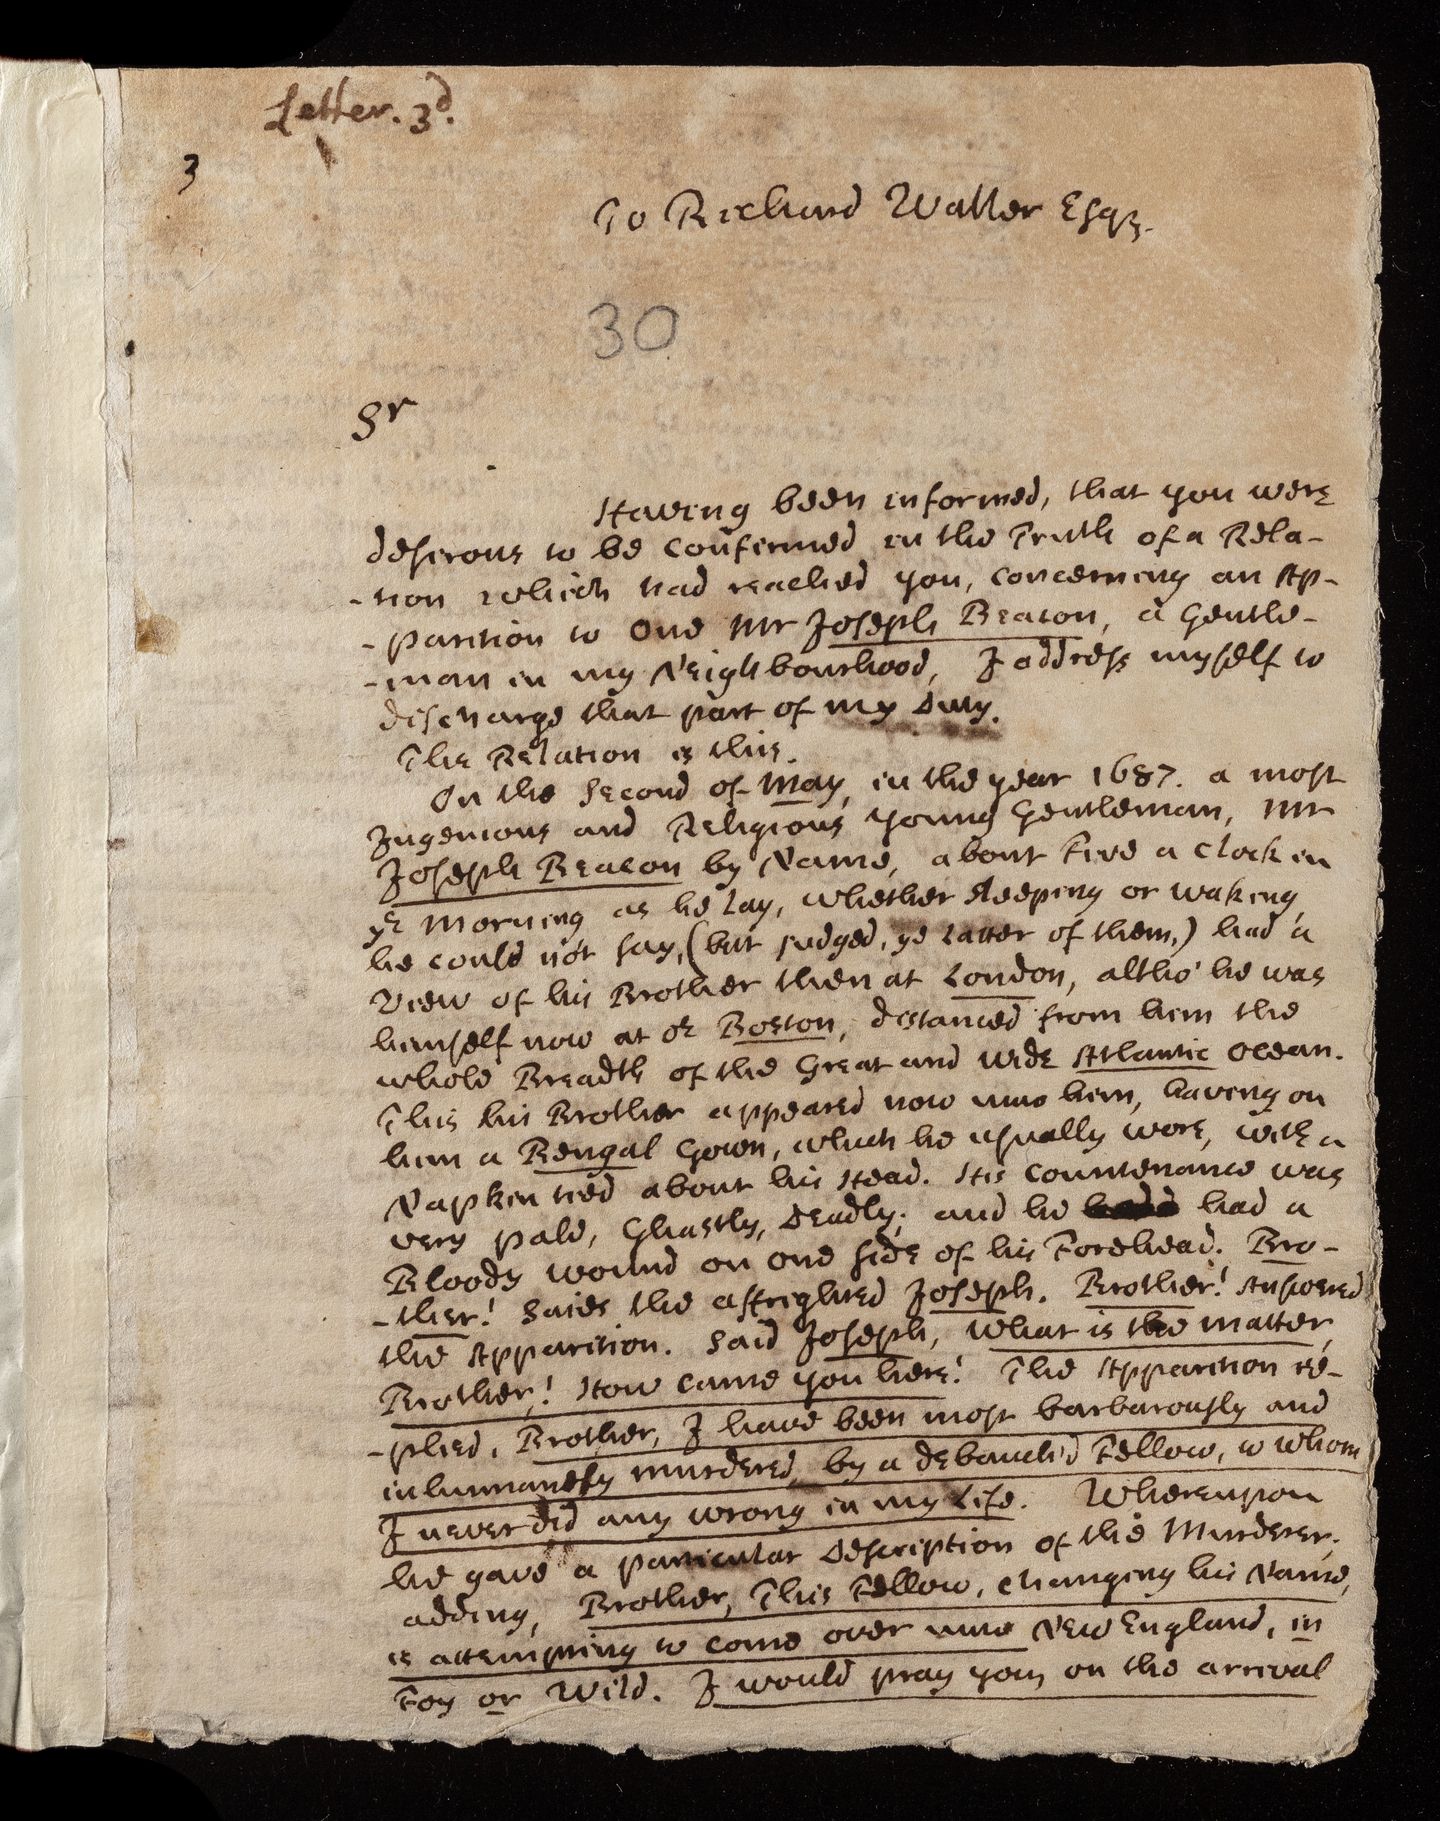 Letter. 3d.
3
To Richard Waller Esqr.
30
Sr
Having been informed, that you were
desirous to be confirmed in the Truth of a Rela-
-tion which had reached you, concerning an Ap-
-parition to One Mr Joseph Beacon, a Gentle-
-man in my Neighbourhood, I address myself to
discharge that part of my Duty.
The Relation is this.
On the Second of May, in the year 1687. a most
Ingenious and Religious young Gentleman, Mr
Joseph Beacon by Name, about Five a clock in
ye Morning as he lay, whether sleeping or waking
he could not say, (but judged, ye Latter of them,) had a
View of his Brother then at London, altho' he was
himself now at or Boston, distanced from him the
whole Breadth of the Great and wide Atlantic Ocean.
This his Brother appeared now unto him, having on
him a Bengal Gown, which he usually wore, with a
Napken tied about his Head. His Countenance was
very pale, Ghastly, Deadly; and he had a
Bloody wound on one side of his Forehead. Bro-
-ther! Saies the affrighted Joseph. Brother! Answered
the Apparition. Said Joseph, What is the matter,
Brother! How came you here! The Apparition re-
-plied, Brother, I have been most barbarously and
inhumanely murdered, by a debauch'd Fellow, to whom
I never did any wrong in my Life. Whereupon
he gave a particular Description of the Murderer;
adding, Brother, This Fellow, changing his Name,
is attempting to come over unto New England, in
Foy or Wild. I would pray you on the arrival